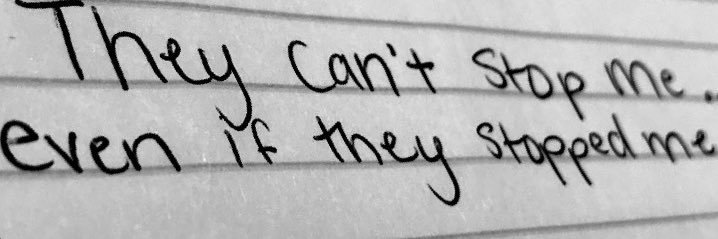 They can't stop me.
even if they stopped me